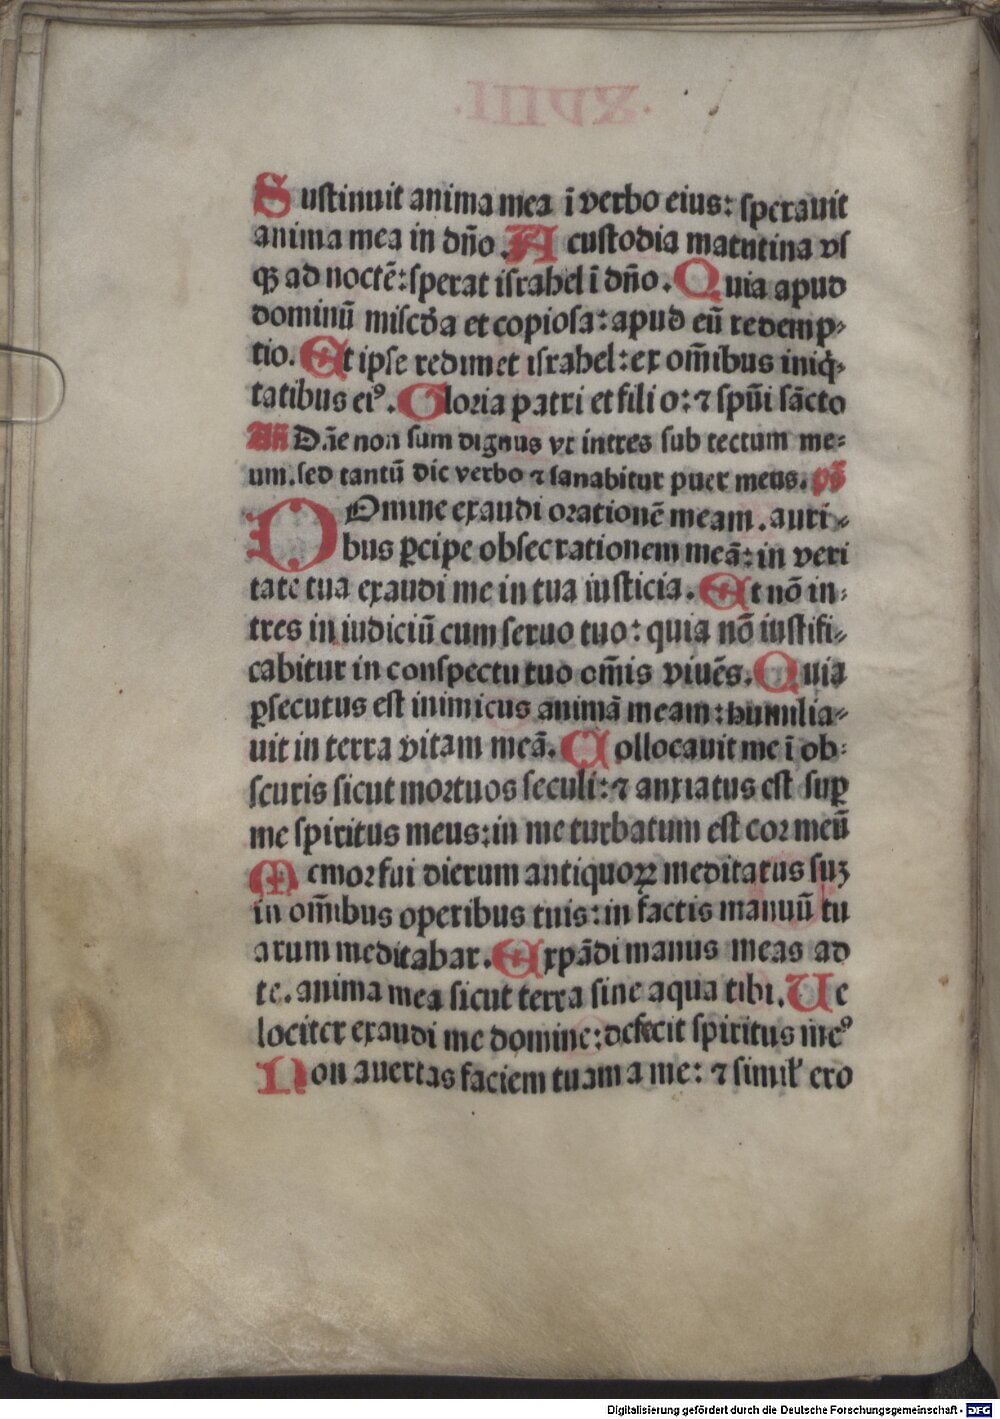 Sustinuit anima mea ī verbo eius: sperauit
anima mea in dño. A custodia matutina vſ
qꝫ ad noctē: sperat israhel ī dño. Quia apud
dominū miſcd̓a et copiosa: apud eū redemp⸗
tio. Et ipse redimet israhel: ex om̄ibus iniq̇⸗
tatibus ei⁹. Gloria patri et filio: ⁊ spūi sācto
Añ Dñe non sum dignus vt intres sub tectum me⸗
um. sed tantū dic verbo ⁊ sanabitur puer meus. pš
DOmine exaudi orationē meam. auri⸗
bus ꝑcipe obsecrationem meā: in veri
tate tua exaudi me in tua iusticia. Et nō in⸗
tres in iudiciū cum seruo tuo: quia nō iustifi⸗
cabitur in conspectu tuo om̄is viuēs. Quia
ꝑsecutus est inimicus animā meam: humilia⸗
uit in terra vitam meā. Collocauit me ī ob⸗
scuris sicut mortuos seculi: ⁊ anxiatus est suꝑ
me spiritus meus: in me turbatum est cor meū
Memor fui dierum antiquoꝝ meditatus suꝫ
in om̄ibus operibus tuis: in factis manuū tu
arum meditabar. Expādi manus meas ad
te. anima mea sicut terra sine aqua tibi. Ue
lociter exaudi me domine: defecit spiritus me⁹
Non auertas faciem tuam a me: ⁊ simil̓ ero
Digitalisierung gefördert durch die Deutsche Forschungsgemeinschaft - DFG